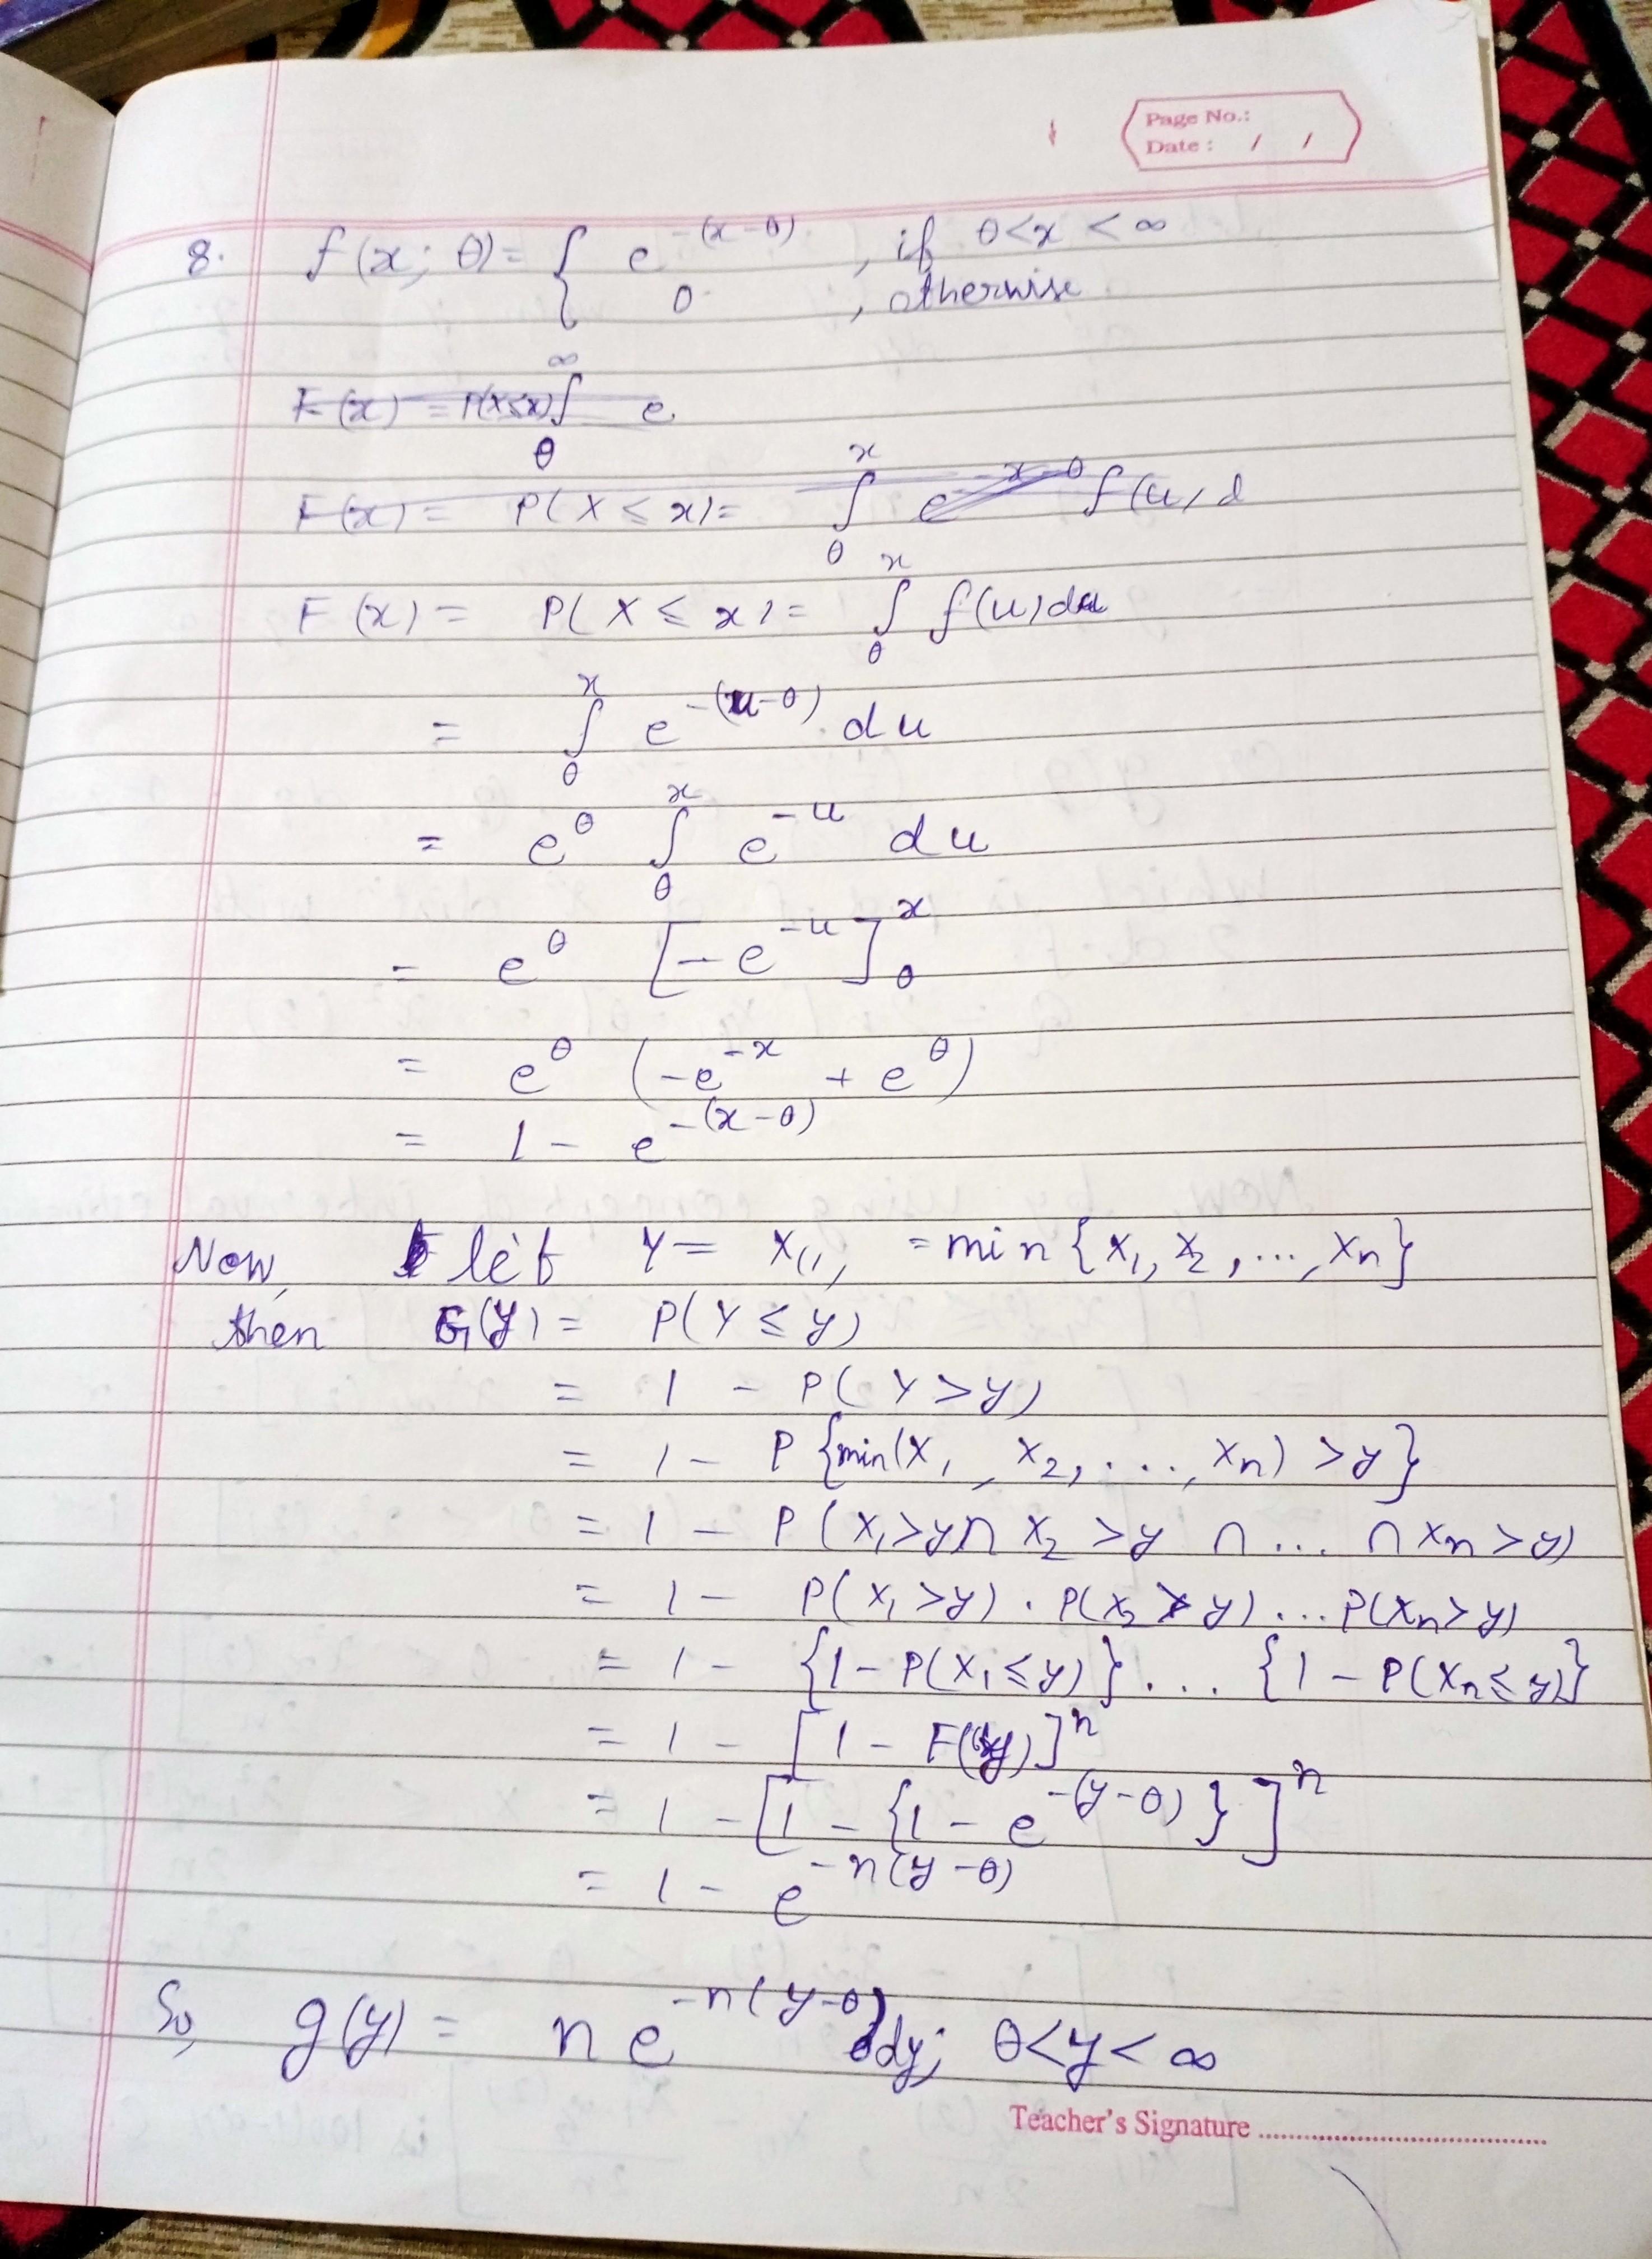 Page No.:
Date : / /
8. f(x; θ) = { e^{-(x-θ)}, if θ<x<∞
0, otherwise
F(x) = P(X≤x) ∫_θ^∞ e
F(x) = P(X ≤ x) = ∫_θ^x e^{-x-θ} f(u) d
F(x) = P(X ≤ x) = ∫_θ^x f(u) du
= ∫_θ^x e^{-(u-θ)} du
= e^θ ∫_θ^x e^{-u} du
= e^θ [-e^{-u}]_θ^x
= e^θ (-e^{-x} + e^θ)
= 1 - e^{-(x-θ)}
Now, let Y = X_{(1)} = min{X₁, X₂, ..., Xn}
then G(y) = P(Y ≤ y)
= 1 - P(Y > y)
= 1 - P{min(X₁, X₂, ..., Xn) > y}
= 1 - P(X₁>y ∩ X₂>y ∩ ... ∩ Xn>y)
= 1 - P(X₁>y) . P(X₂>y) ... P(Xn>y)
= 1 - {1-P(X₁≤y)} ... {1-P(Xn≤y)}
= 1 - [1 - F(y)]^n
= 1 - [1 - {1 - e^{-(y-θ)}}]^n
= 1 - e^{-n(y-θ)}
So, g(y) = n e^{-n(y-θ)} dy; θ<y<∞
Teacher's Signature ..........